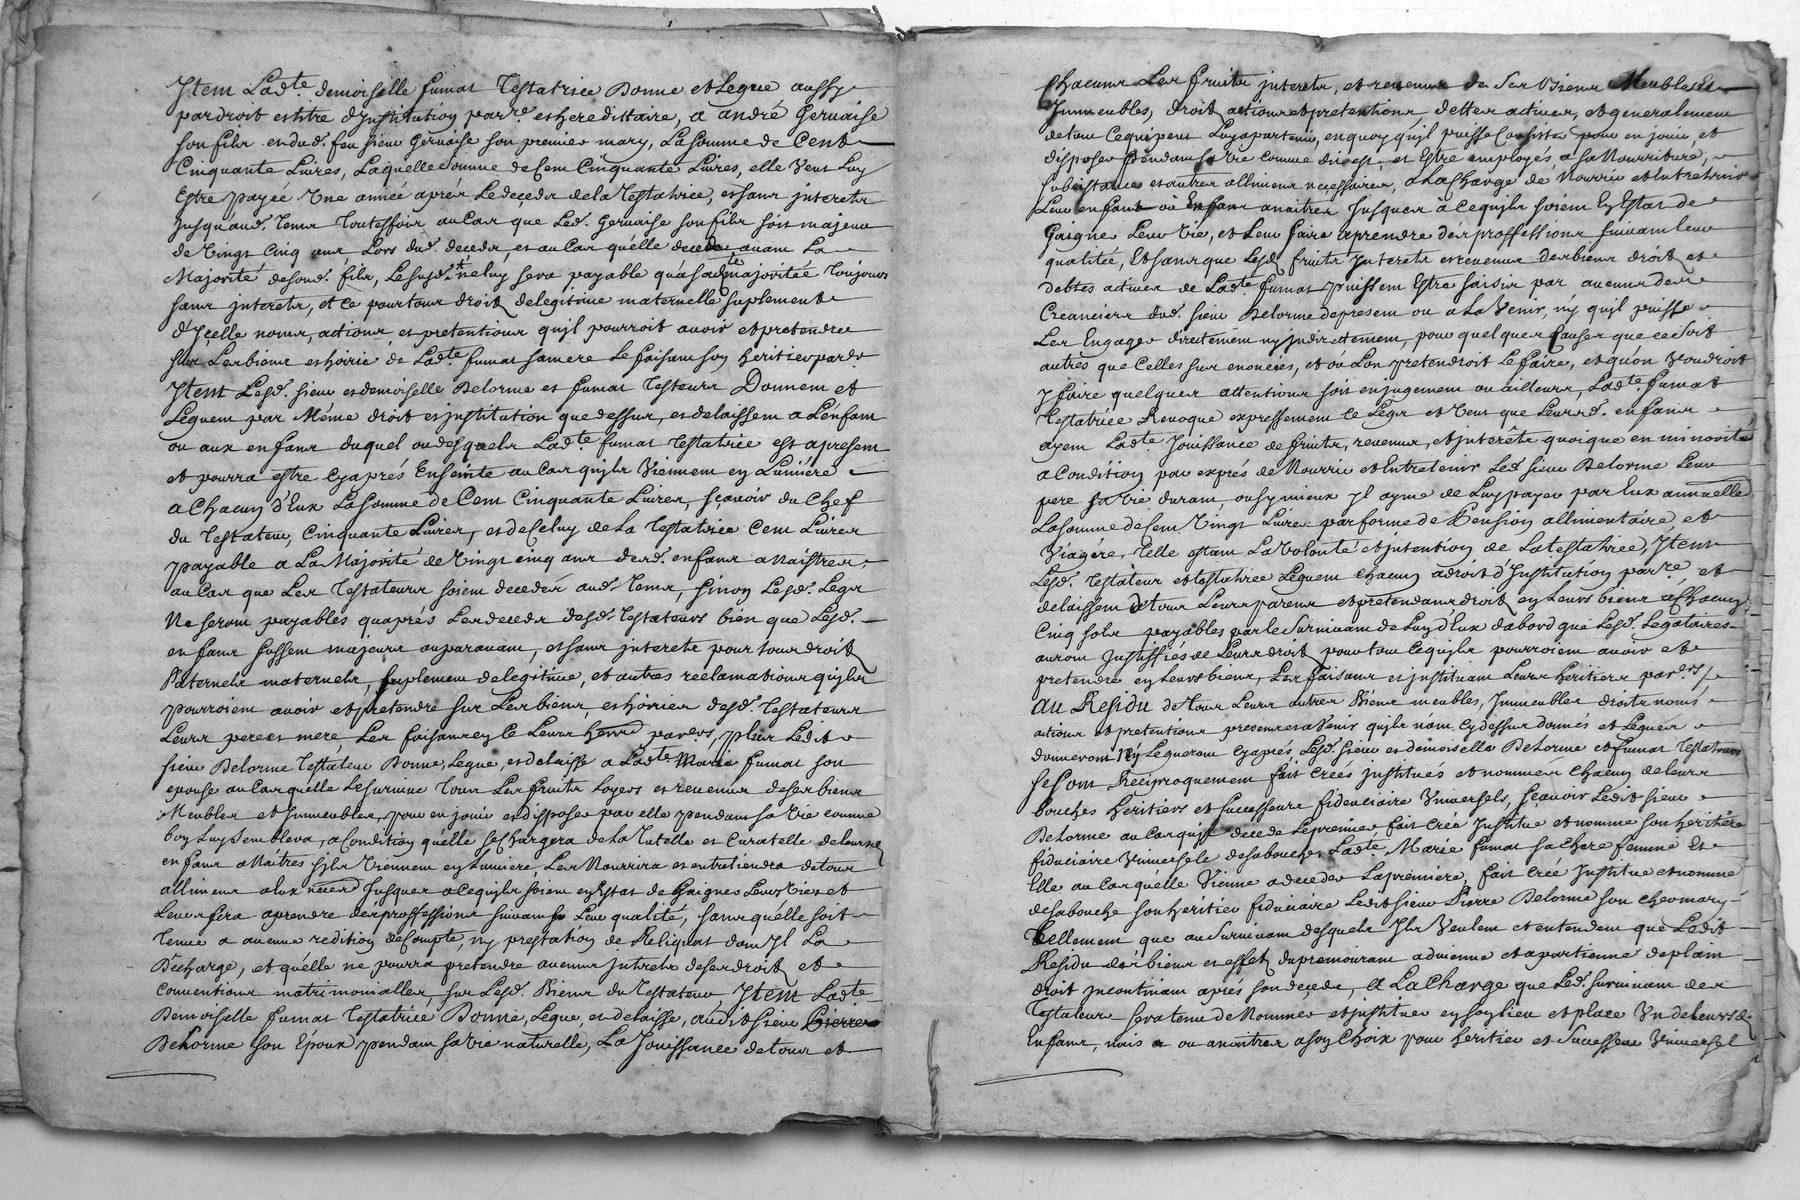 Item Lad.te demoiselle fumat Testatrice Donne et Legue aussy
par droit et titre d'Institution par.re et hereditaire, a andré Gervaise
son fils et dud. feu sieur Gervaise son premier mary, La somme de Cent
Cinquante Livres, Laquelle somme de Cent Cinquante Livres, elle Veut Luy
Estre payée Une année aprés Le deceda de la Testatrice, et sans interets
jusqu'aud. Tems Touteffois au Cas que Led. Gervaise son fils soit majeur
de Vingt Cinq ans Lors dud. deceda, et au Cas qu'elle decede avant La
Majorité de sond. fils, Le susd. ne luy sera payable qu'a sad.te majoritée Toujours
sans interets, et ce pour tous droits de legitime maternelle suplement
d'Jcelle noms, actions et pretentions qu'jl pourroit avoir et pretendre
sur Les biens et hoirie de Lad.te fumat sa mere Le faisant son heritier par
Jtem Lesd. sieur et demoiselle Delorme et fumat Testeurs Donnent et
Léguent par Même droit et institution que dessus, et delaissent a L'enfant
ou aux enfans duquel ou desquels Lad.te fumat Testatrice est apresent
et pourra estre Cy aprés Enseinte au Cas qu'jls Viennent en Lumiére
a Chacun d'Eux La somme de Cent Cinquante Livres, sçavoir du Chef
du Testateur, Cinquante Livres, et de Celuy de La Testatrice Cent Livres
payable a La Majorité de Vingt cinq ans desd. enfans a Naistres,
au Cas que Les Testateurs soient decedés aud. Tems, sinon Lesd. Legs
Ne seront payables qu'aprés Les decedz desd. Testateurs bien que Lesd.
enfans fussent majeurs auparavant, et sans interets pour tous droits
Paternels maternels, suplement de legitime, et autres reclamations qu'jls
pourroient avoir et pretendre sur Les biens, et hoiries desd. Testateurs
Leurs pere et mere, Les faisant en ce Leurs par.ers, plus Ledit
sieur Delorme Testateur Donne, Legue, et delaisse a Lad.te Marie fumat son
epouse au Cas qu'elle Le survive Tous Les fruits Loyers et revenus de ses biens
Meubles et Immeubles, pour en jouir et disposer par elle pendant sa Vie comme
bon Luy semblera, a Condition qu'elle se Chargera de La Tutelle et Curatelle de leurs
enfans a Naitres s'jls Viennent en Lumiere, Les Nourrira et entretiendra de tous
allimens a Eux jusques a ce qu'jls soient en Estat de Gaigner Leur Vie et
Leur fera aprendre des proffessions suivant Leur qualité, sans qu'elle soit
Tenue a aucune redition de Compte, ny prestation de Reliquat dont Jl La
Décharge, et qu'elle ne pourra pretendre aucuns Jnterets de ses droits et
Conventions matrimonialles, sur Lesd. Biens du Testateur, Jtem Lad.te
Demoiselle fumat Testatrice Donne, Légue, et delaisse, audit sieur Pierre
Delorme son Epoux pendant sa Vie naturelle, La Jouissance de tous et
Chacuns Les fruits interets, et revenus de ses Biens Meubles et
Jmmeubles, droits actions et pretentions, dettes actives, et generalement
de tout Ce qui peut Luy apartenir, en quoy qu'jl puisse Consister pour en jouir, et
disposer pendant sa Vie comme dit est, et Estre employés a sa Nourriture,
subsistance et autres allimens necessaires, a La Charge de Nourrir et Entretenir
Leur enfant ou Enfans a naitres Jusques à ce qu'jls soient En Estat de
Gaigner Leur Vie, et Leur faire aprendre des proffessions suivant leur
qualitée, Et sans que Lesd. fruits Jnterets et revenus des biens droits et
debtes actives de Lad.te fumat puissent Estre saisis par aucuns des
Creanciers dud. sieur Delorme de present ou a La Venir, n'y qu'jl puisse
Les Engager directement ny jndirectement, pour quelques Causes que ce soit
autres que Celles sus enoncées, et où L'on pretendroit Le faire, et qu'on Voudroit
y faire quelques attentions soit en jugement ou ailleurs, Lad.te fumat
Testatrice Revoque expressement Le Legs et Veut que Leursd. enfans
ayent Lad.te Jouissance de fruits, revenus, et interêts quoique en minorité
a Condition par exprés de Nourrir et Entretenir Led. sieur Delorme Leur
pere sa Vie durant, ou sy mieux Jl ayme de Luy payer par Eux annuelle
La somme de Cent Vingt Livres par forme de Pension allimentaire, et
Viagére, Telle etant La Volonté et jntention de La testatrice, Jtem
Lesd. Testateur et testatrice Leguent chacun a droit d'Institution par.re et
delaissent à tous Leurs parens et pretendans droits en Leurs biens a Chacun
Cinq sols payables par le Survivant de L'uy d'Eux d'abord que Lesd. Legataires
auront justiffiés de Leurs droits pour tout Ce qu'jls pourroient avoir et
pretendre en Leurs biens, Les faisans et instituant Leurs heritiers par.ers,
au Residu de tous Leurs autres Biens meubles, Jmmeubles droits noms
actions et pretentions presens et a Venir qu'jls n'ont Cy dessus donnés et Legués
donneront Ny Legueront Cy aprés Lesd. sieur et demoiselle Delorme et fumat Testateurs
se sont Reciproquement fait Créés jnstitués et nommés Chacun de leurs
bouches heritiers et successeurs fiduciaire Vniversels, sçavoir Ledit sieur
Delorme au Cas qu'jl decede Le premier fait Créé Jnstitue et nomme son heritiere
fiduciaire Vniversele de sa bouche, Lad.te Marie fumat sa chere femme Et
Elle au Cas qu'elle Vienne a deceder La premiere, fait Créé Jnstitue et nomme
de sa bouche son heritier fiduciaire Ledit sieur Pierre Delorme son cher mary
Tellement que au Survivant desquels Jls Veulent et entendent que Ledit
Residu des biens et effets du premourant advienne et apartienne de plain
droit jncontinant aprés son decede, A La Charge que Led. survivant des
Testateurs sera tenu de Nommer et jnstituer en son lieu et place Vn de leursd.
Enfans, nais ou a naitres a son Choix pour heritier et Successeur Vniversel